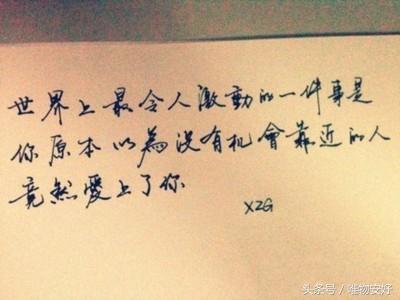 世界上最令人激動的一件事是
你原本以為沒有机會靠近的人
竟然愛上了你
XZG
头条号/唯物安好